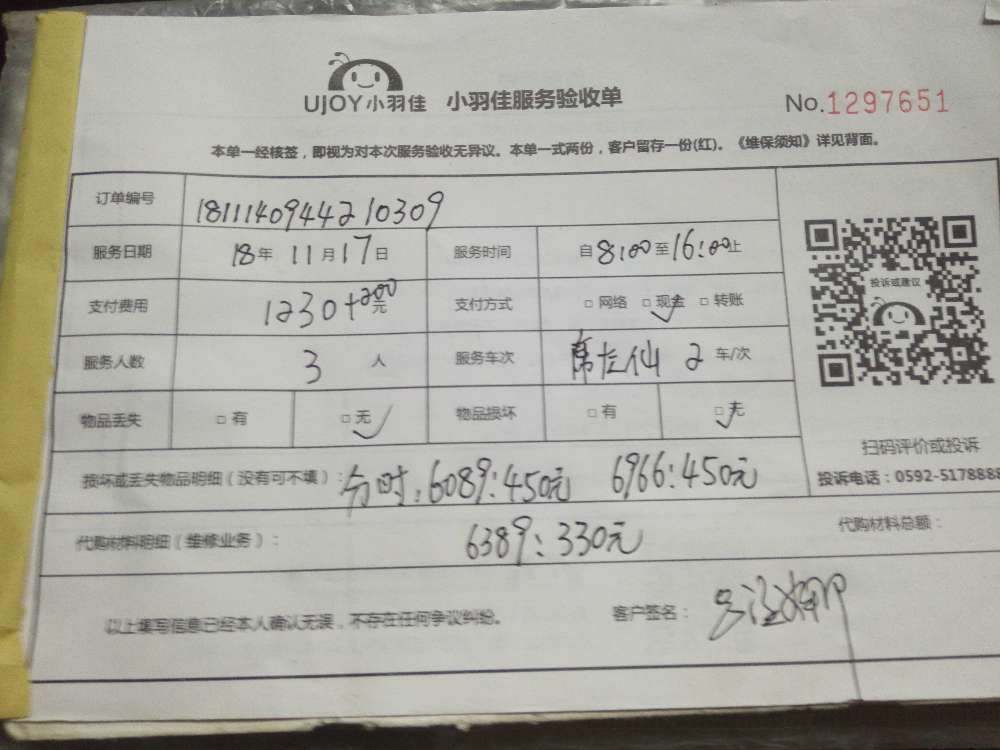 UJOY小羽佳 小羽佳服务验收单 No.1297651
本单一经核签，即视为对本次服务验收无异议。本单一式两份，客户留存一份(红)。《维保须知》详见背面。
订单编号 1811140944210309
服务日期 18年 11月17日 服务时间 自8:00至16:00止
支付费用 1230+200元 支付方式 □网络 □现金✓ □转账
服务人数 3人 服务车次 2 车/次
物品丢失 □有 □无✓ 物品损坏 □有 □无✓
损坏或丢失物品明细（没有可不填）：分时：6089:450元 6966:450元
代购材料明细（维修业务）： 6389:330元 代购材料总额：
以上填写信息已经本人确认无误，不存在任何争议纠纷。 客户签名：
投诉或建议
扫码评价或投诉
投诉电话：0592-5178888